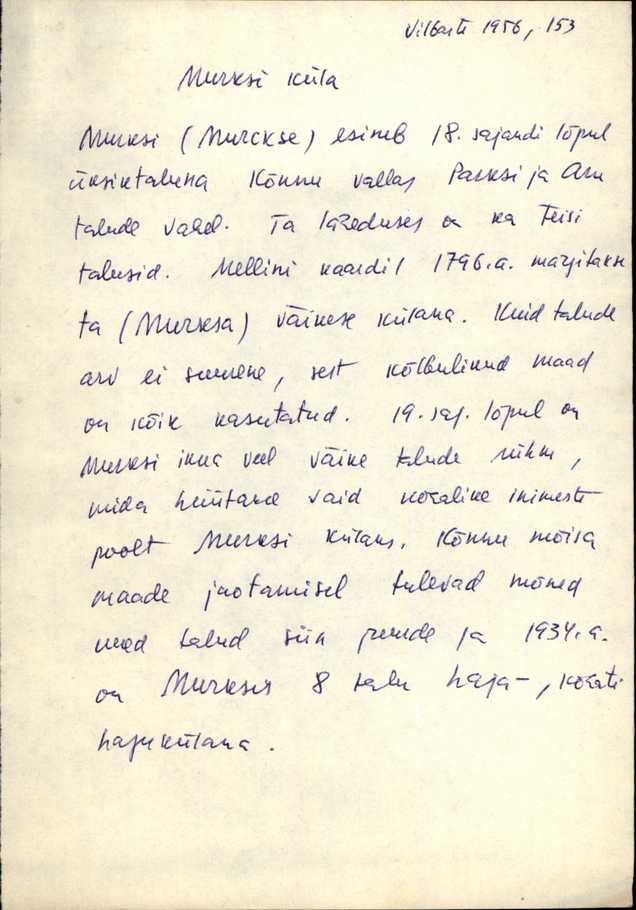 Vilbaste 1956, 153
Murksi küla
Murksi (Murckse) esineb 18. sajandi lõpul
üksiktaluna Kõnnu vallas Parksi ja Aru
talude vahel. Ta läheduses on ka teisi
talusid. Mellini kaardil 1796.a. märgitakse
ta (Murksa) väikese külana. Kuid talude
arv ei suurene, sest kõlbulikud maad
on kõik kasutatud. 19. saj. lõpul on
Murksi ikka veel väike talude rühm,
mida hüütakse vaid kohalike inimeste
poolt Murksi külaks. Kõnnu mõisa
maade jaotamisel tulevad mõned
uued talud siin juurde ja 1934.a.
on Murksis 8 talu haja-, kohati
hajukülana.